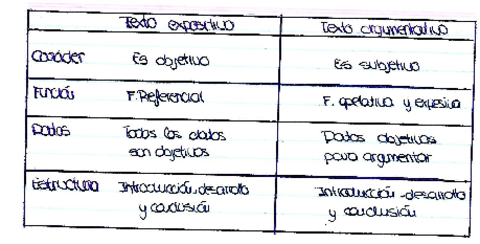 Texto expositivo	Texto argumentativo
Carácter	Es objetivo	Es subjetivo
Función	F. Referencial	F. apelativa y expresiva
Datos	Todos los datos	Datos objetivos
son objetivos	para argumentar
Estructura	Introducción, desarrollo	Introducción - desarrollo
y conclusión	y conclusión